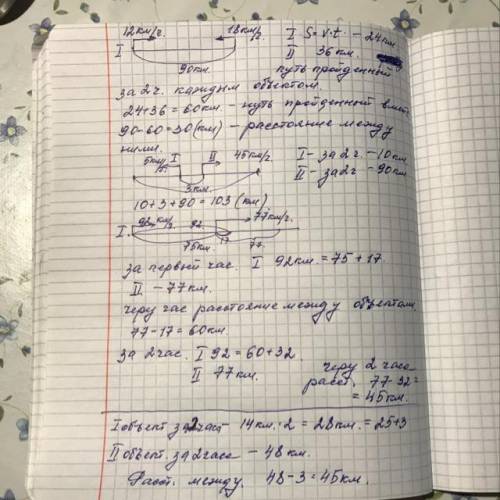 12км/ч. 18км/ч. I S=v.t. – 24км
I II 36км.
90км. путь пройденный
за 2ч. каждым объектом.
24+36=60км – путь пройденный
90-60=30(км) – расстояние между
ними.
I II 45км/ч. I – за 2ч. – 10км
II – за 2ч – 90км
3км.
10+3+90=103(км)
92 км/ч. 77км/ч.
I. 92.
75км. 17 77.
за первый час. I 92км.=75+17
II – 77км.
через час расстояние между объектами
77-17=60км.
за 2час. I 92=60+32
II 77км. через 2 часа
расст. 77-32=
=45км.
I объект за 2 часа 14км.·2=28км.=25+3
II объект. за 2 часа – 48км.
Расст. между. 48-3=45км.